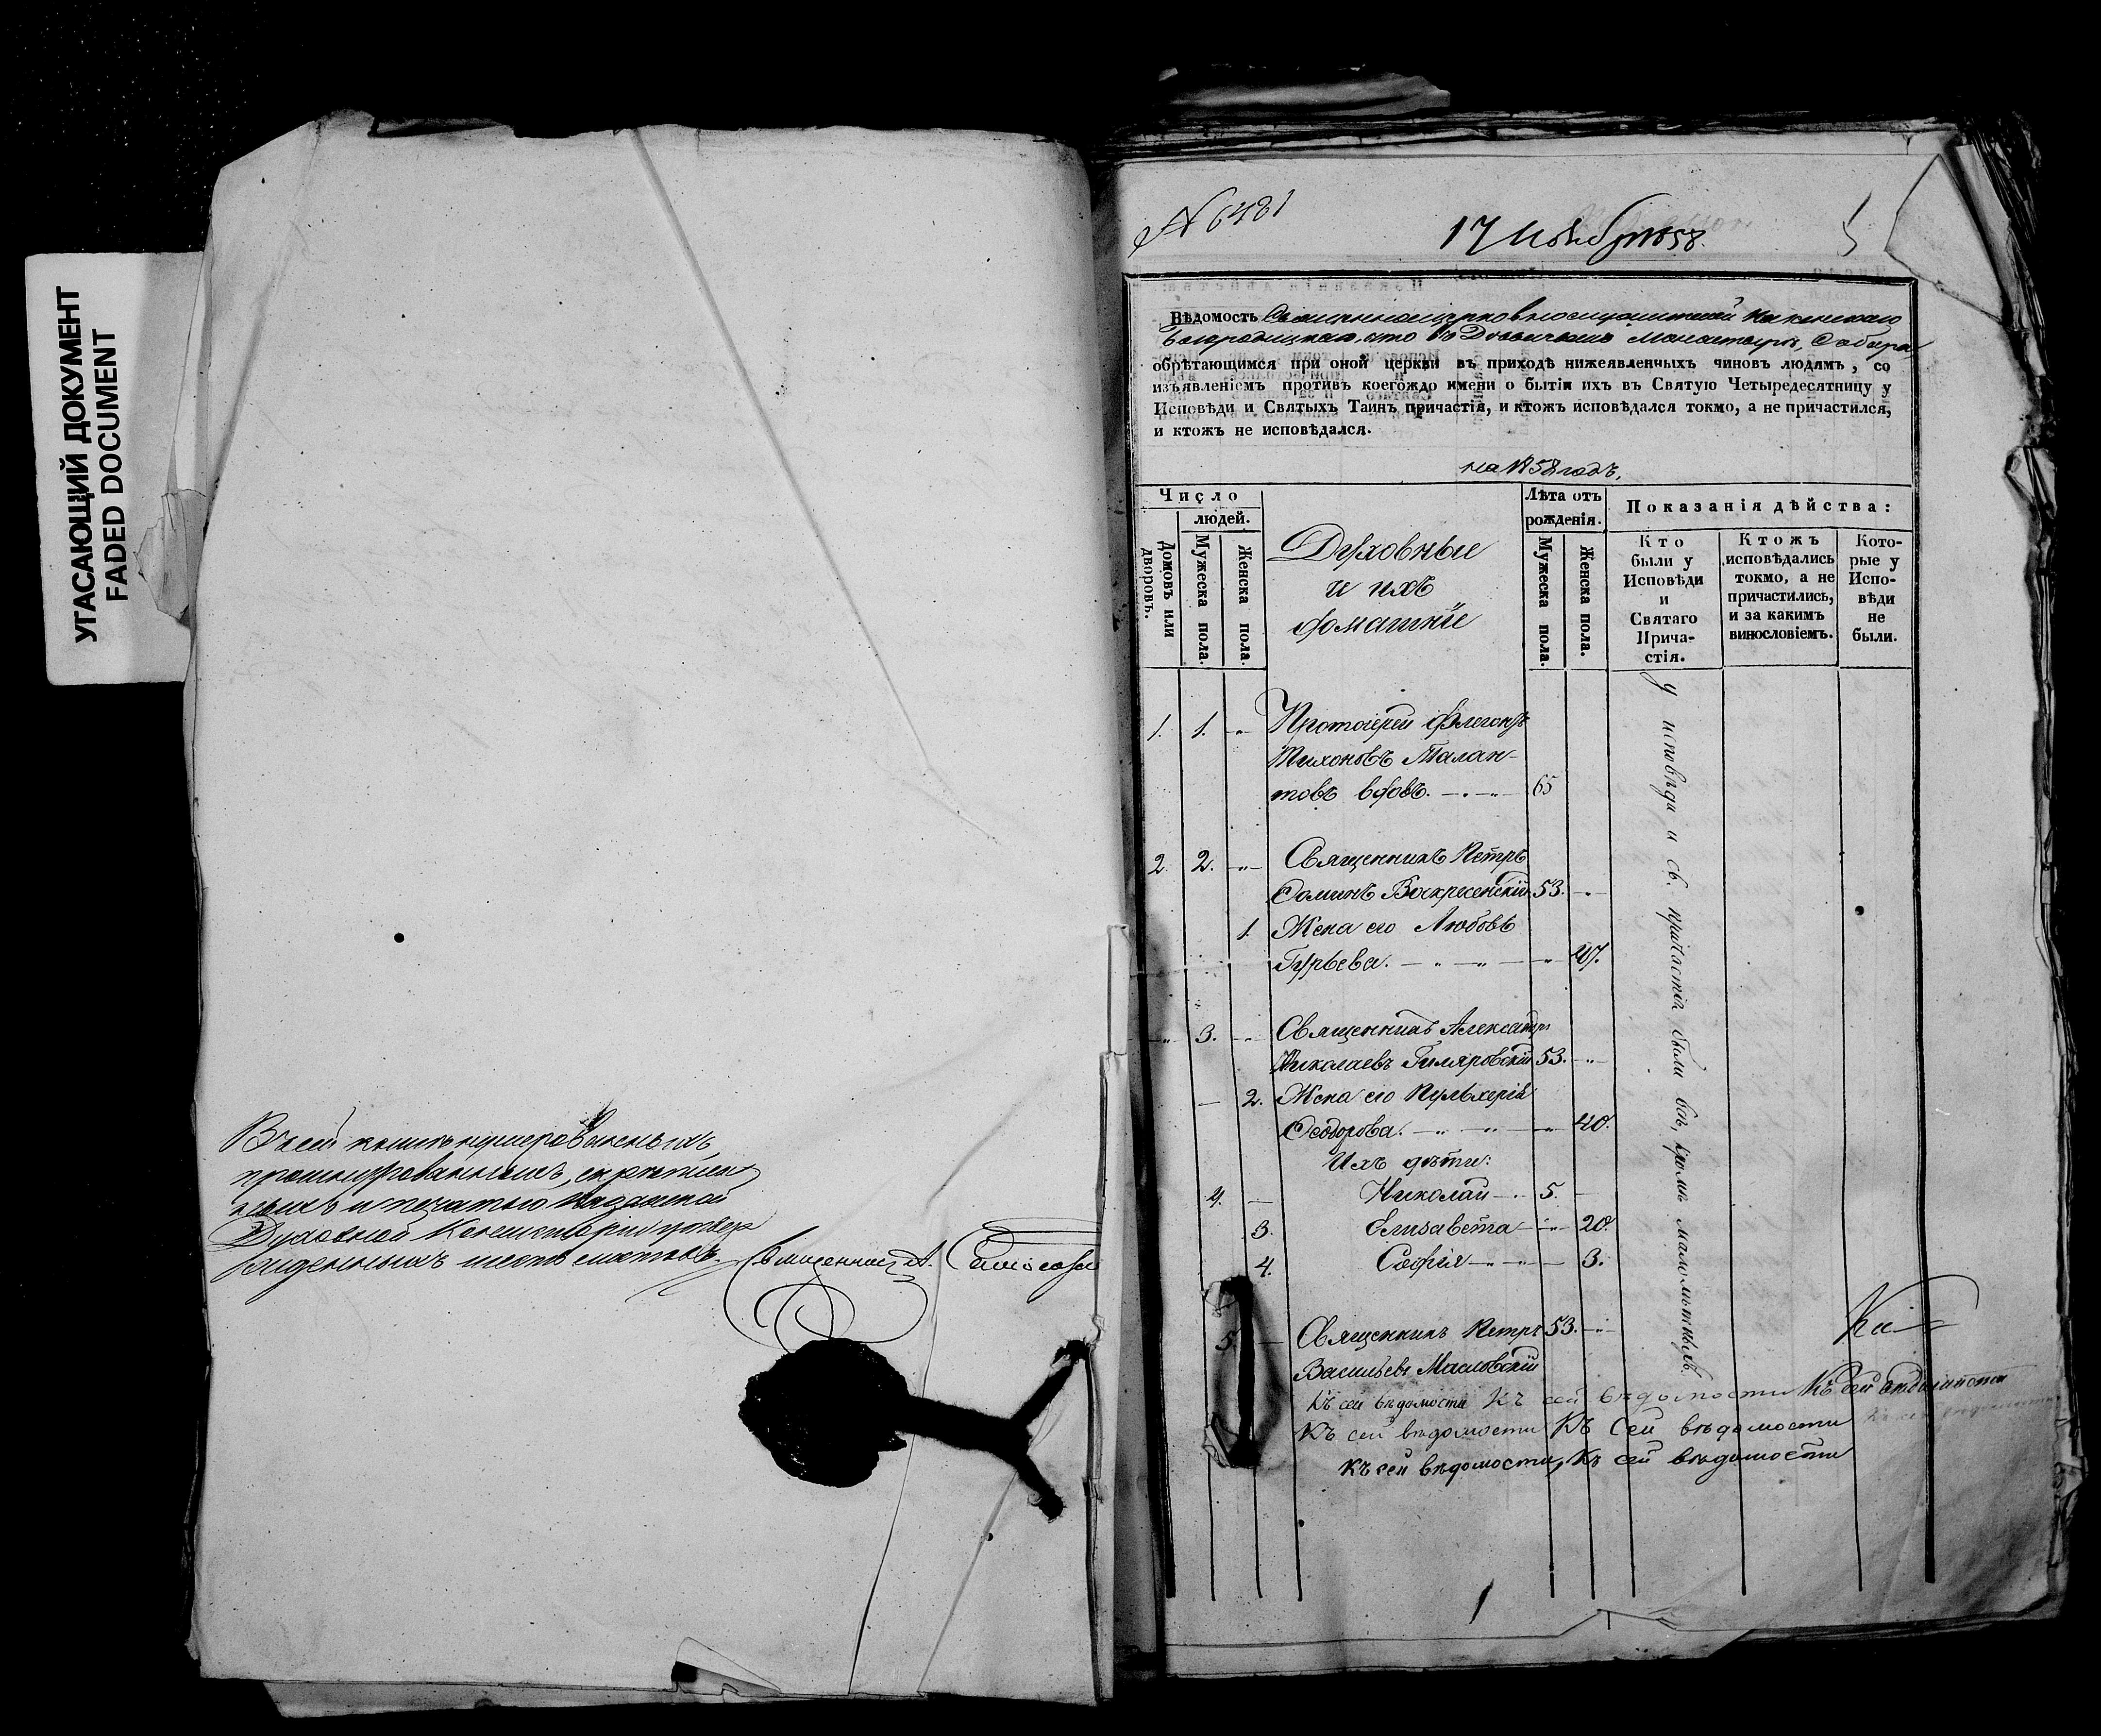 УГАСАЮЩИЙ ДОКУМЕНТ
FADED DOCUMENT
В сей книгѣ нумерованныхъ,
прошнурованныхъ, скрѣплен
ныхъ и печатью Казанской
Духовной Консисторіи утвер
жденныхъ шесть листовъ.
Священникъ А.
№ 6481
17 Ноября 1858.
Вѣдомость Священноцерковнослужителей Казанскаго
Богородицкаго, что въ Дѣвичьемъ Монастырѣ, Собора
обрѣтающимся при оной церкви въ приходѣ нижеявленныхъ чиновъ людямъ, со
изъявленіемъ противъ коегождо имени о бытіи ихъ въ Святую Четыредесятницу у
Исповѣди и Святыхъ Таинъ причастія, и ктожъ исповѣдался токмо, а не причастился,
и ктожъ не исповѣдался.
на 1858 годъ.
Число
людей.
Домовъ или дворовъ.
Мужеска пола.
Женска пола.
Духовные
и ихъ
домашніе
Лѣта отъ
рожденія.
Мужеска пола.
Женска пола.
Показанія дѣйства:
Кто
были у
Исповѣди
и
Святаго
Прича-
стія.
Ктожъ
исповѣдались
токмо, а не
причастились,
и за какимъ
винословіемъ.
Кото-
рые у
Испо-
вѣди
не
были.
1. 1. -„- Протоіерей Флегонтъ
Тихоновъ Талан-
товъ вдовъ. 65
2. 2. -„- Священникъ Петръ
Фоминъ Воскресенскій 53. -„-
1. Жена его Любовь
Гурьева. -„- 47.
-„- 3. -„- Священникъ Александръ
Николаевъ Гиляровскій 53. -„-
— 2. Жена его Пульхерія
Ѳеодорова. -„- 40.
Ихъ дѣти:
4. — Николай 5. -
3. Елисавета -„- 20.
4. Софія — 3.
5. — Священникъ Петръ 53. -„-
Васильевъ Масловскій
у исповѣди и св. причастія были всѣ, кромѣ малолѣтныхъ
Къ сей вѣдомости Къ сей вѣдомости Къ сей вѣдомости
Къ сей вѣдомости Къ сей вѣдомости
Къ сей вѣдомости, Къ сей вѣдомости
1